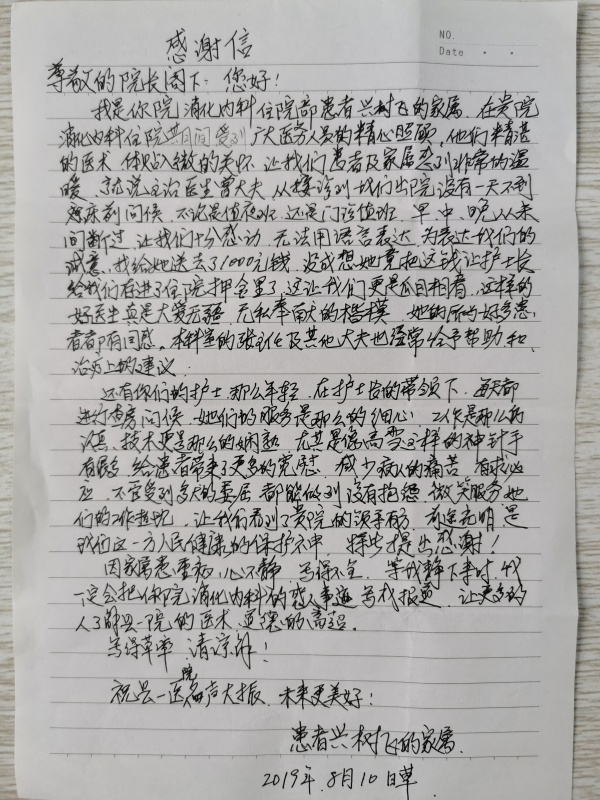 NO.
Date . .
感谢信
尊敬的院长阁下: 您好!
我是你院消化内科住院部患者兴树飞的家属. 在贵院
消化内科住院其间受到广大医务人员的精心照顾, 他们精湛
的医术 体贴入微的关怀. 让我们患者及家属感到非常的温
暖. 就说主治医生曾大夫, 从接诊到我们出院没有一天不到
病床前问候. 不论是值夜班, 还是门诊值班. 早. 中. 晚从未
间断过, 让我们十分感动. 无法用语言表达, 为表达我们的
诚意, 我给她送去了1000元钱, 没成想她竟把这钱让护士长
给我们存进了住院押金里了, 这让我们更是刮目相看, 这样的
好医生真是大爱无疆 无私奉献的楷模. 她的所为好多患
者都有同感. 本科室的张主任及其他大夫也经常给予帮助和
治疗上的建议.
还有你们的护士那么年轻, 在护士长的带领下. 每天都
进行查房问候. 她们的服务是那么的细心. 工作是那么的
认真, 技术更是那么的娴熟. 尤其是像高雪这样的神针手
有很多. 给患者带来了更多的宽慰. 减少病人的痛苦 有求必
应. 不管受到多大的委屈 都能做到没有抱怨 微笑服务她
们的工作 让我们看到了贵院的领导有方, 前途光明 是
我们这一方人民健康的保护神. 提出感谢!
因家属患重病, 心不静. 写得不全. 等我静下来时 我
一定会把你院消化内科的感人事迹写成报道. 让更多的
人了解兴一院的医术. 道德的高超.
写得草率. 请谅解!
祝兴一医院名声大振. 未来更美好!
患者兴树飞的家属.
2019年. 8月10日草